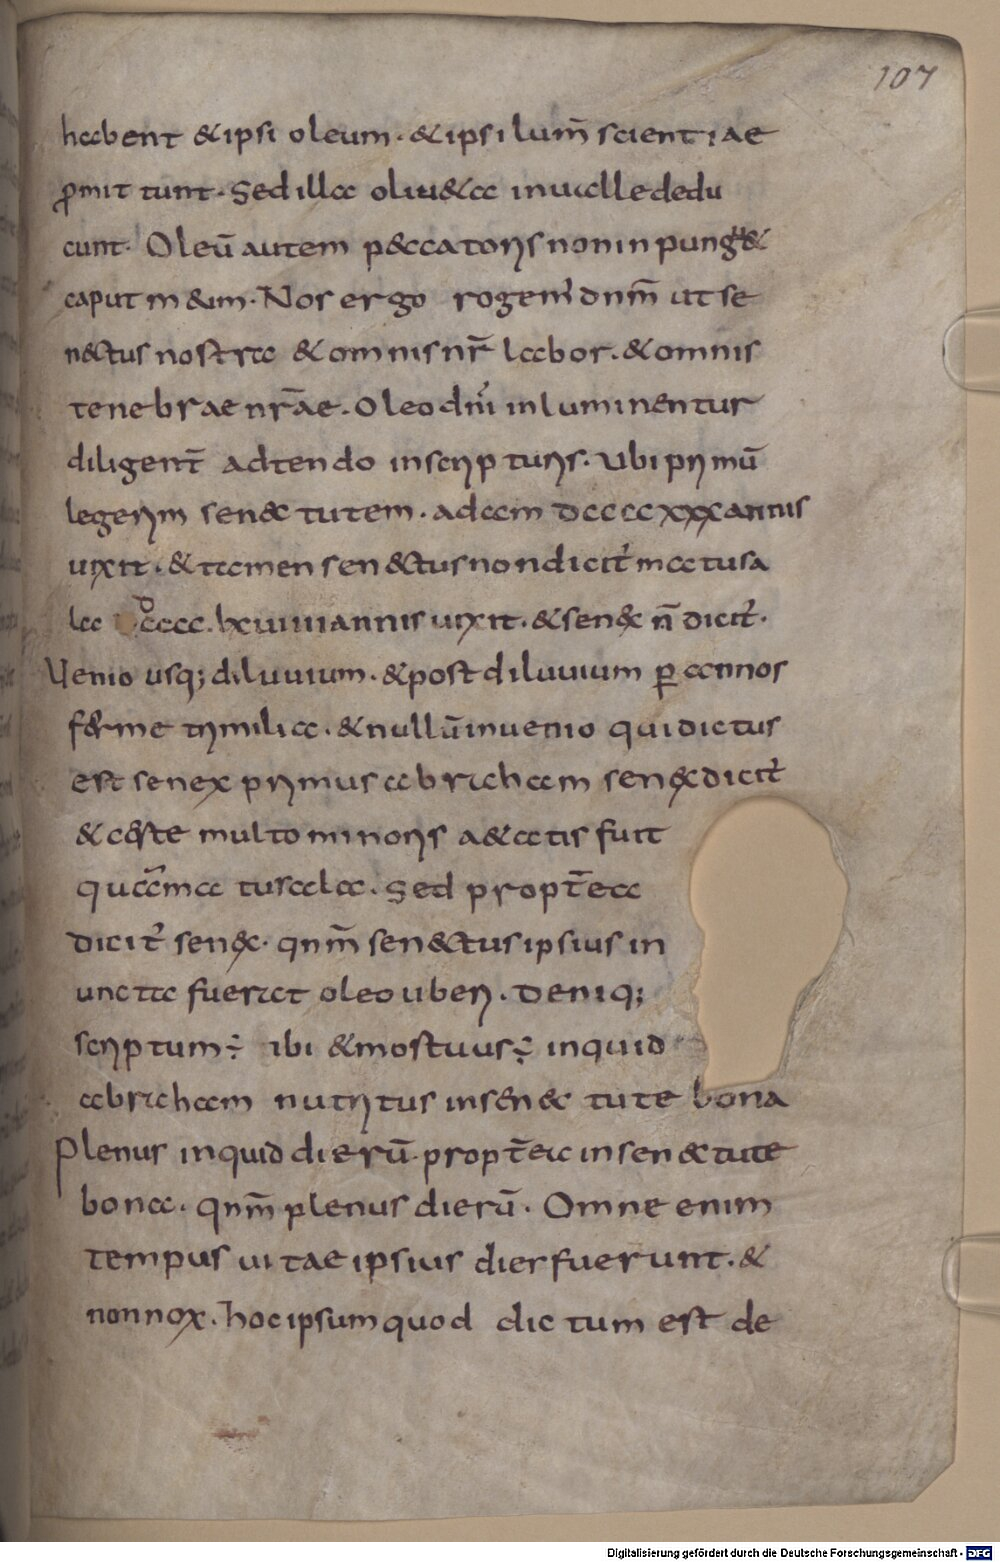 107
habent & ipsi oleum · & ipsi lum̄ scientiae
ꝓmittunt · Sed illa oliu& a inualle dedu
cunt · Oleū autem p&ccatoris non inpung&
caput m&um · Nos ergo rogem' dnm̄ ut se
n&ctus nostra & omnis nr̄ labor · & omnis
tenebrae nr̄ae · Oleo dni' inluminentur
diligent̄ adtendo inscripturis · Ubi primū
legerim sen&c tutem · adam dccccxxx annis
uixit · & tamen sen&ctus non dicit' matusa
la dcccc.lxuiiii annis uixit · & sen&x n̄ dicit' ·
Uenio usq; diluuium · & post diluuium ꝑ annos
ferme trimilia · & nullū inuenio qui dictus
est senex primus abraham sen&x dicit'
& certe multo minoris a&atis fuit
quam̄ matusala · Sed propt̄ea
dicit' sen&x · qnm̄ sen&ctus ipsius in
uncta fuerat oleo uberi · Deniq;
scriptum÷ ibi & mos tuus÷ inquid
abraham nutritus insen&c tute bona
Plenus inquid dierū · propt̄ea insen&c tute
bona · qnm̄ plenus dierū · Omne enim
tempus uitae ipsius dies fuerunt · &
non nox · hoc ipsum quod dictum est de
Digitalisierung gefördert durch die Deutsche Forschungsgemeinschaft - DFG